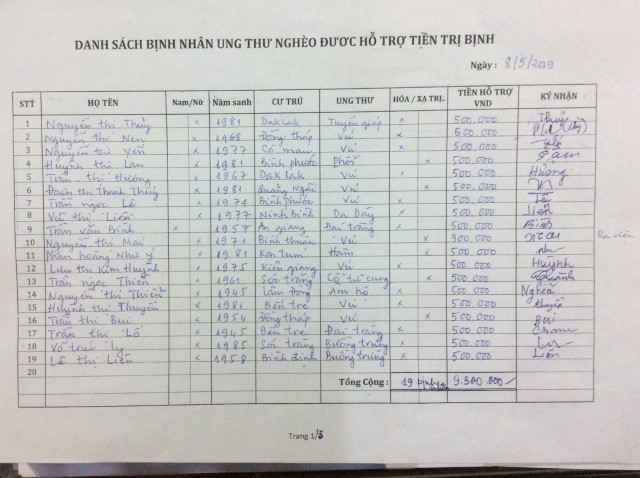 DANH SÁCH BỊNH NHÂN UNG THƯ NGHÈO ĐƯƠC HỖ TRỢ TIỀN TRỊ BỊNH
Ngày : 8/5/2019
STT HỌ TÊN Nam/Nữ Năm sanh CƯ TRÚ UNG THƯ HÓA / XẠ TRỊ.. TIỀN HỖ TRỢ VND KÝ NHẬN
1 Nguyễn thị Thủy x 1981 Daklak Tuyến giáp x 500.000 Thủy
2 Nguyễn thị Nen x 1968 Đồng tháp Vú x 500.000
3 Nguyễn thị Yến x 1977 Cà mau Vú x 500.000
4 Huỳnh thị Lan x 1981 Bình phước Phổi x 500.000
5 Trần thị Hương x 1967 Dak lak Vú x 500.000 Hương
6 Đoàn thị Thanh Thúy x 1981 Quảng Ngãi Vú x 500.000
7 Trần ngọc Lê x 1974 Bình phước Vú x 500.000 Lê
8 Vũ thị Liên x 1977 Ninh bình Dạ Dày x 500.000 Liên
9 Trần văn Bình x 1957 An giang Đại tràng x 500.000 Bình
10 Nguyễn thị Mai x 1971 Bình thuận Vú x 300.000 Mai Ra viện
11 Phan hoàng Như ý x 1981 Kon tum Hàm x 500.000 như
12 Lưu thị Kim Huỳnh x 1975 Kiên giang Vú x 500.000 Huỳnh
13 Trần ngọc Thiền x 1961 Sóc trăng Cổ tử cung x 500.000
14 Nguyễn thị x 1945 Lâm Đồng Âm hộ x 500.000 Nghĩa
15 Huỳnh thị Thuyền x 1981 Bến tre Vú x 500.000 thuyền
16 Trần thị Bui x 1954 Đồng tháp Vú x 500.000 bui
17 Trần thị Lố x 1945 Bến tre Đại tràng x 500.000
18 Võ trúc ly x 1985 Sóc trăng Buồng trứng x 500.000
19 Lê thị Liên x 1958 Bình định Buồng trứng x 500.000 Liên
20
Tổng Cộng : 19 bịnh nhân 9.300.000
Trang 1/3